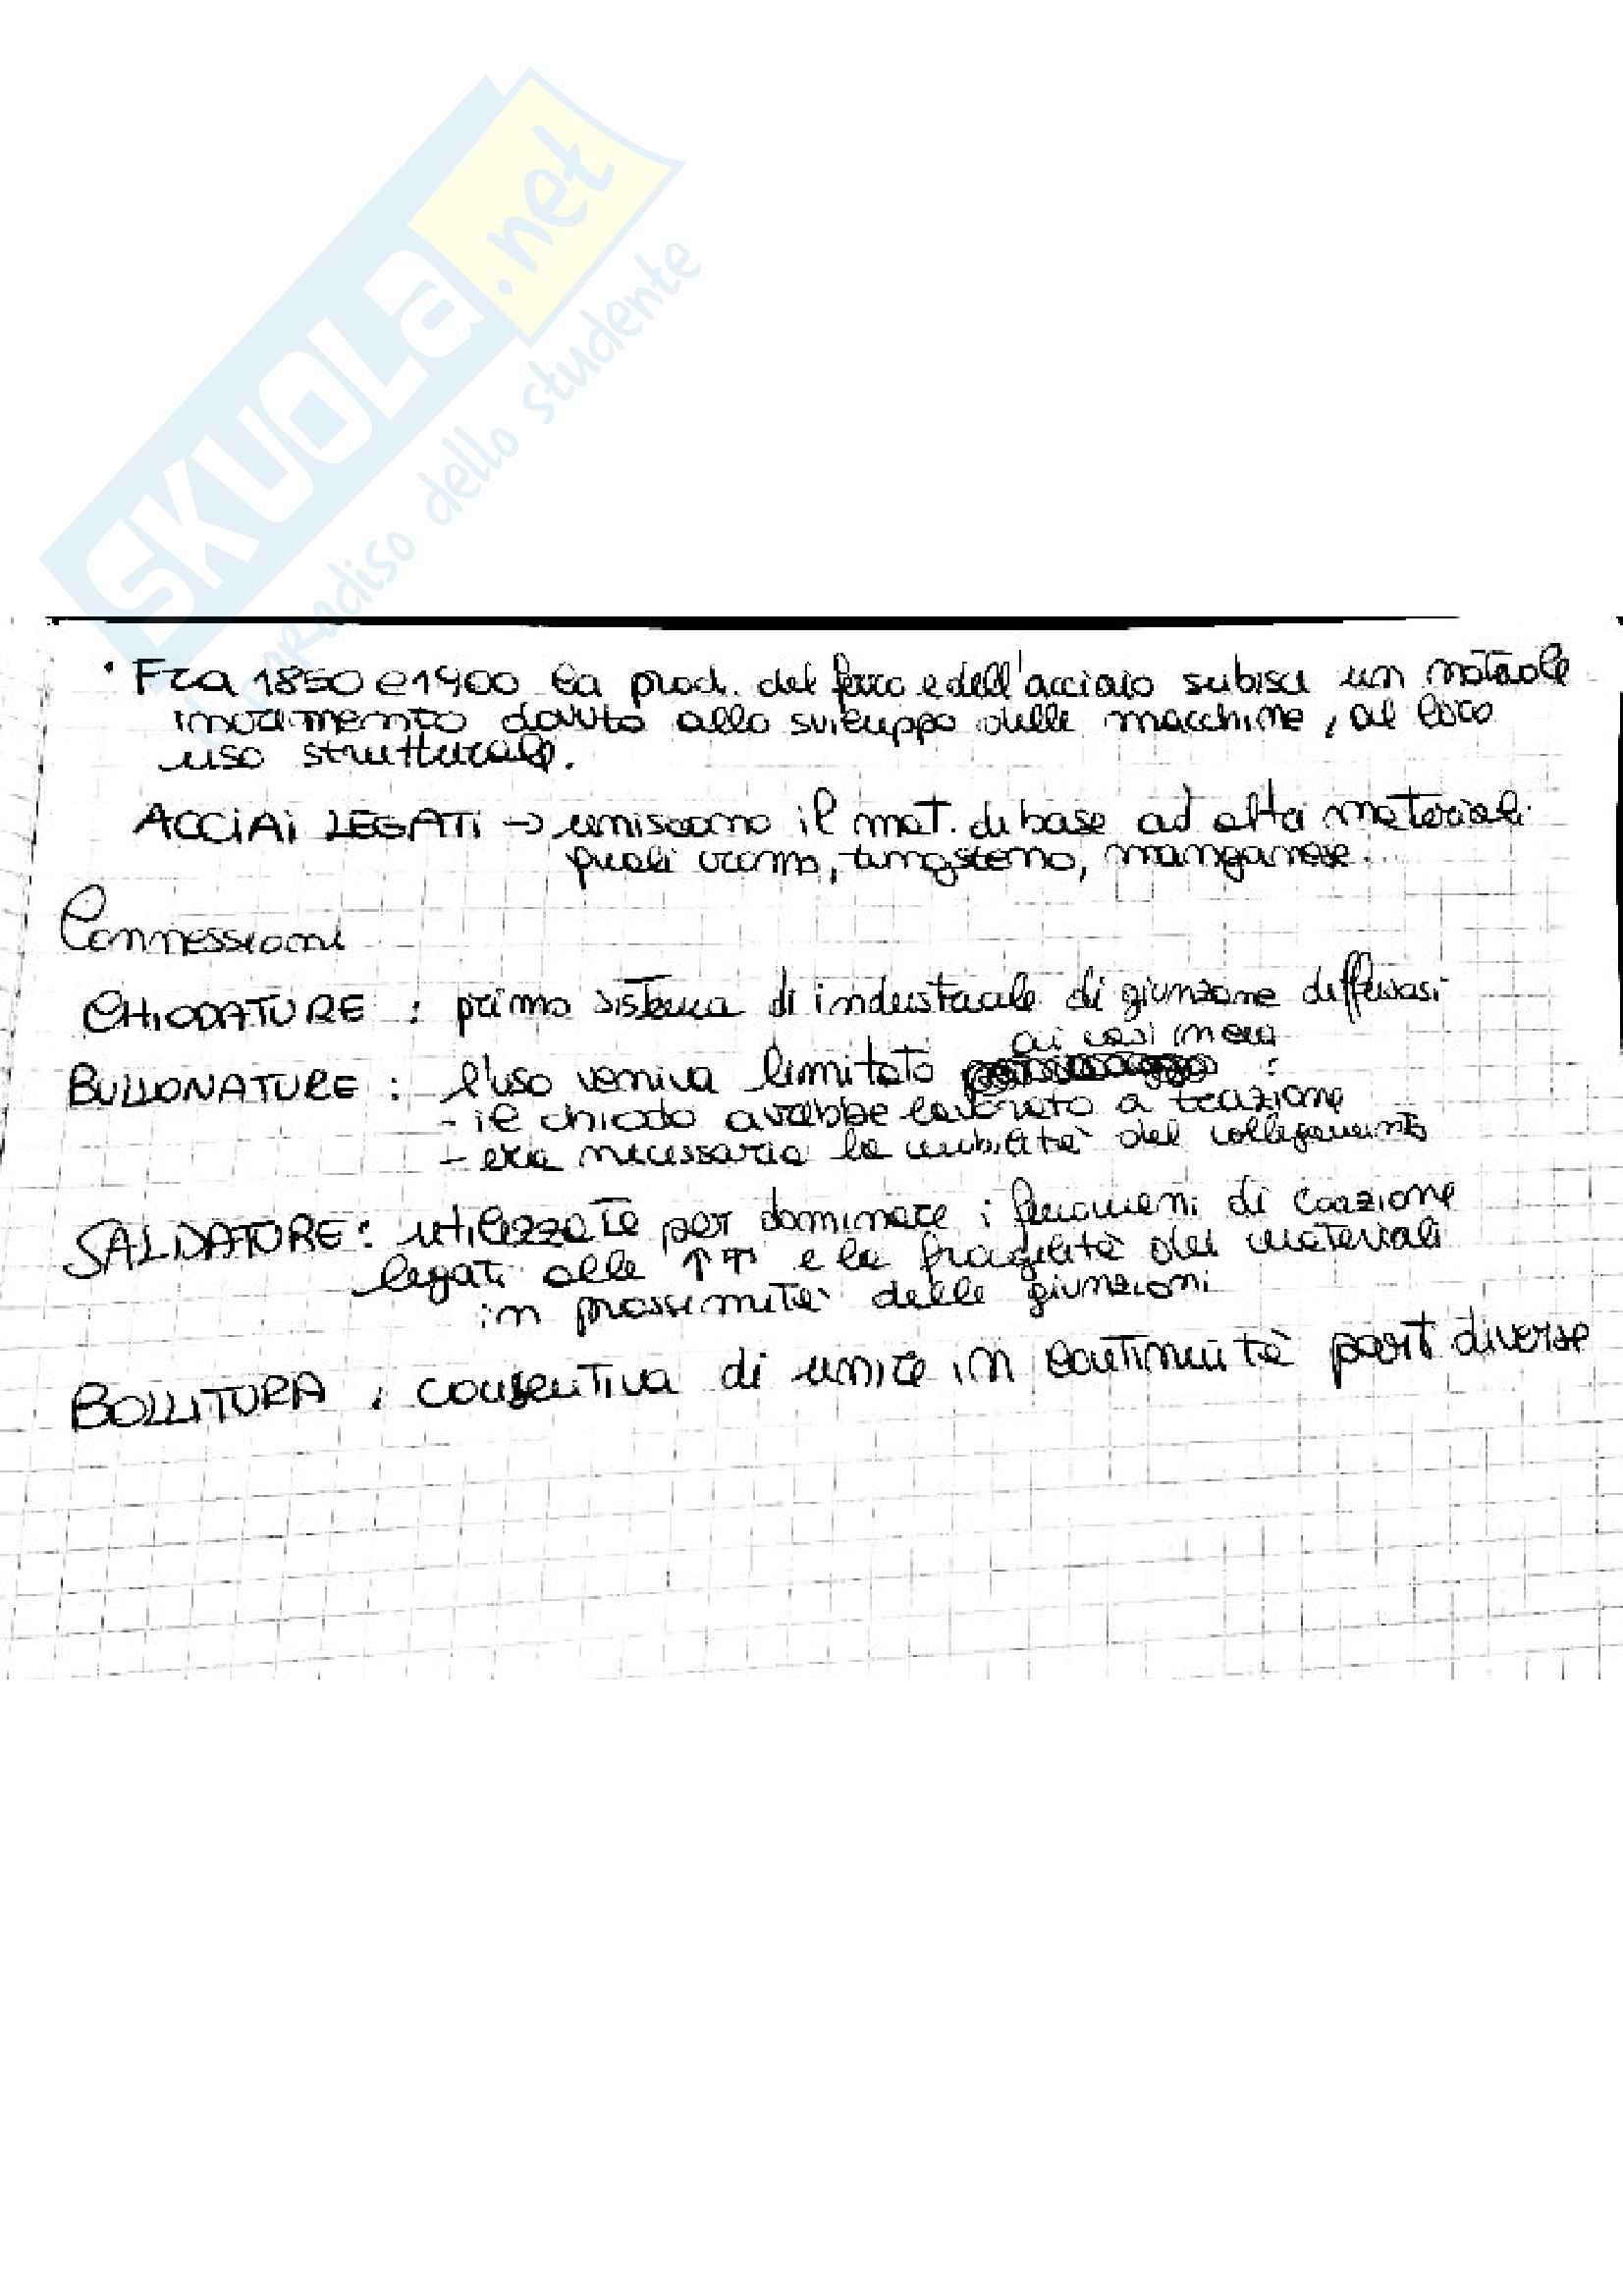 SKUOLA.net
il paradiso dello studente
• Fra 1850 e 1900 la prod. del ferro e dell'acciaio subisce un notevole
incremento dovuto allo sviluppo delle macchine, al loro
uso strutturale.
ACCIAI LEGATI → uniscono il mat. di base ad altri materiali
quali cromo, tungsteno, manganese.
Connessioni
CHIODATURE : primo sistema di industriale di giunzione diffusosi
ai casi in cui
BULLONATURE : l'uso veniva limitato :
- il chiodo avrebbe lavorato a trazione
- era necessaria la mobilità del collegamento
SALDATURE : utilizzate per dominare i fenomeni di coazione
legati alle ↑ T° e la fragilità dei materiali
in prossimità delle giunzioni
BOLLITURA : consentiva di unire in continuità parti diverse